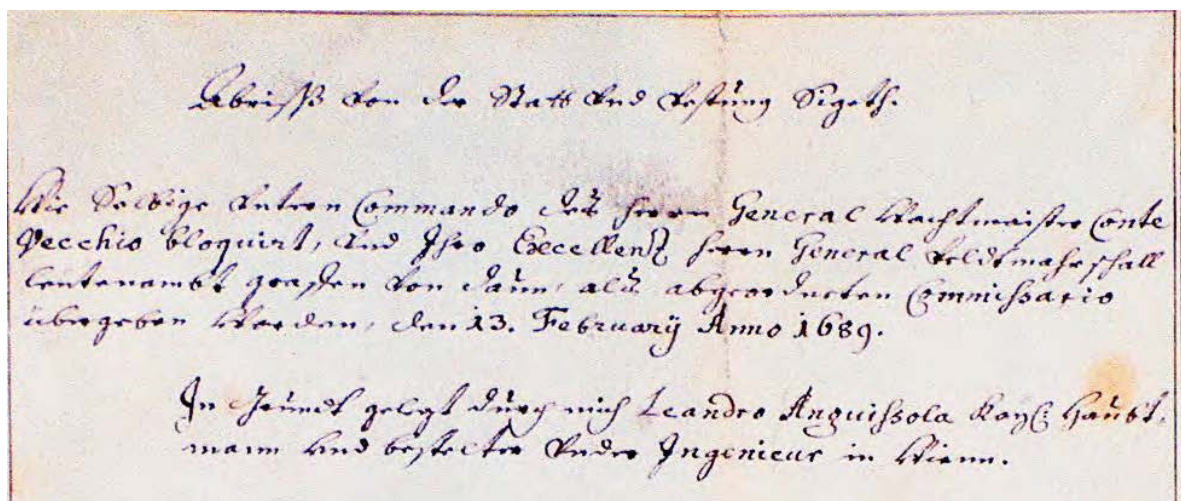 Abriss von der Statt vnd Vestung Sigeth.
Wie Selbige vntern Commando des herrn General Wachtmeister Conte
Vecchio bloquirt, vnd Ihro Excellenz herrn General Veldtmahrschall
leutenambt graffen von Daun, als abgeordneten Commissario
übergeben Worden, den 13. February Anno 1689.
In Grundt gelegt durch mich Leandro Anguissola Kays. Haubt-
mann vnd bestelter vnder Ingenieur in Wienn.